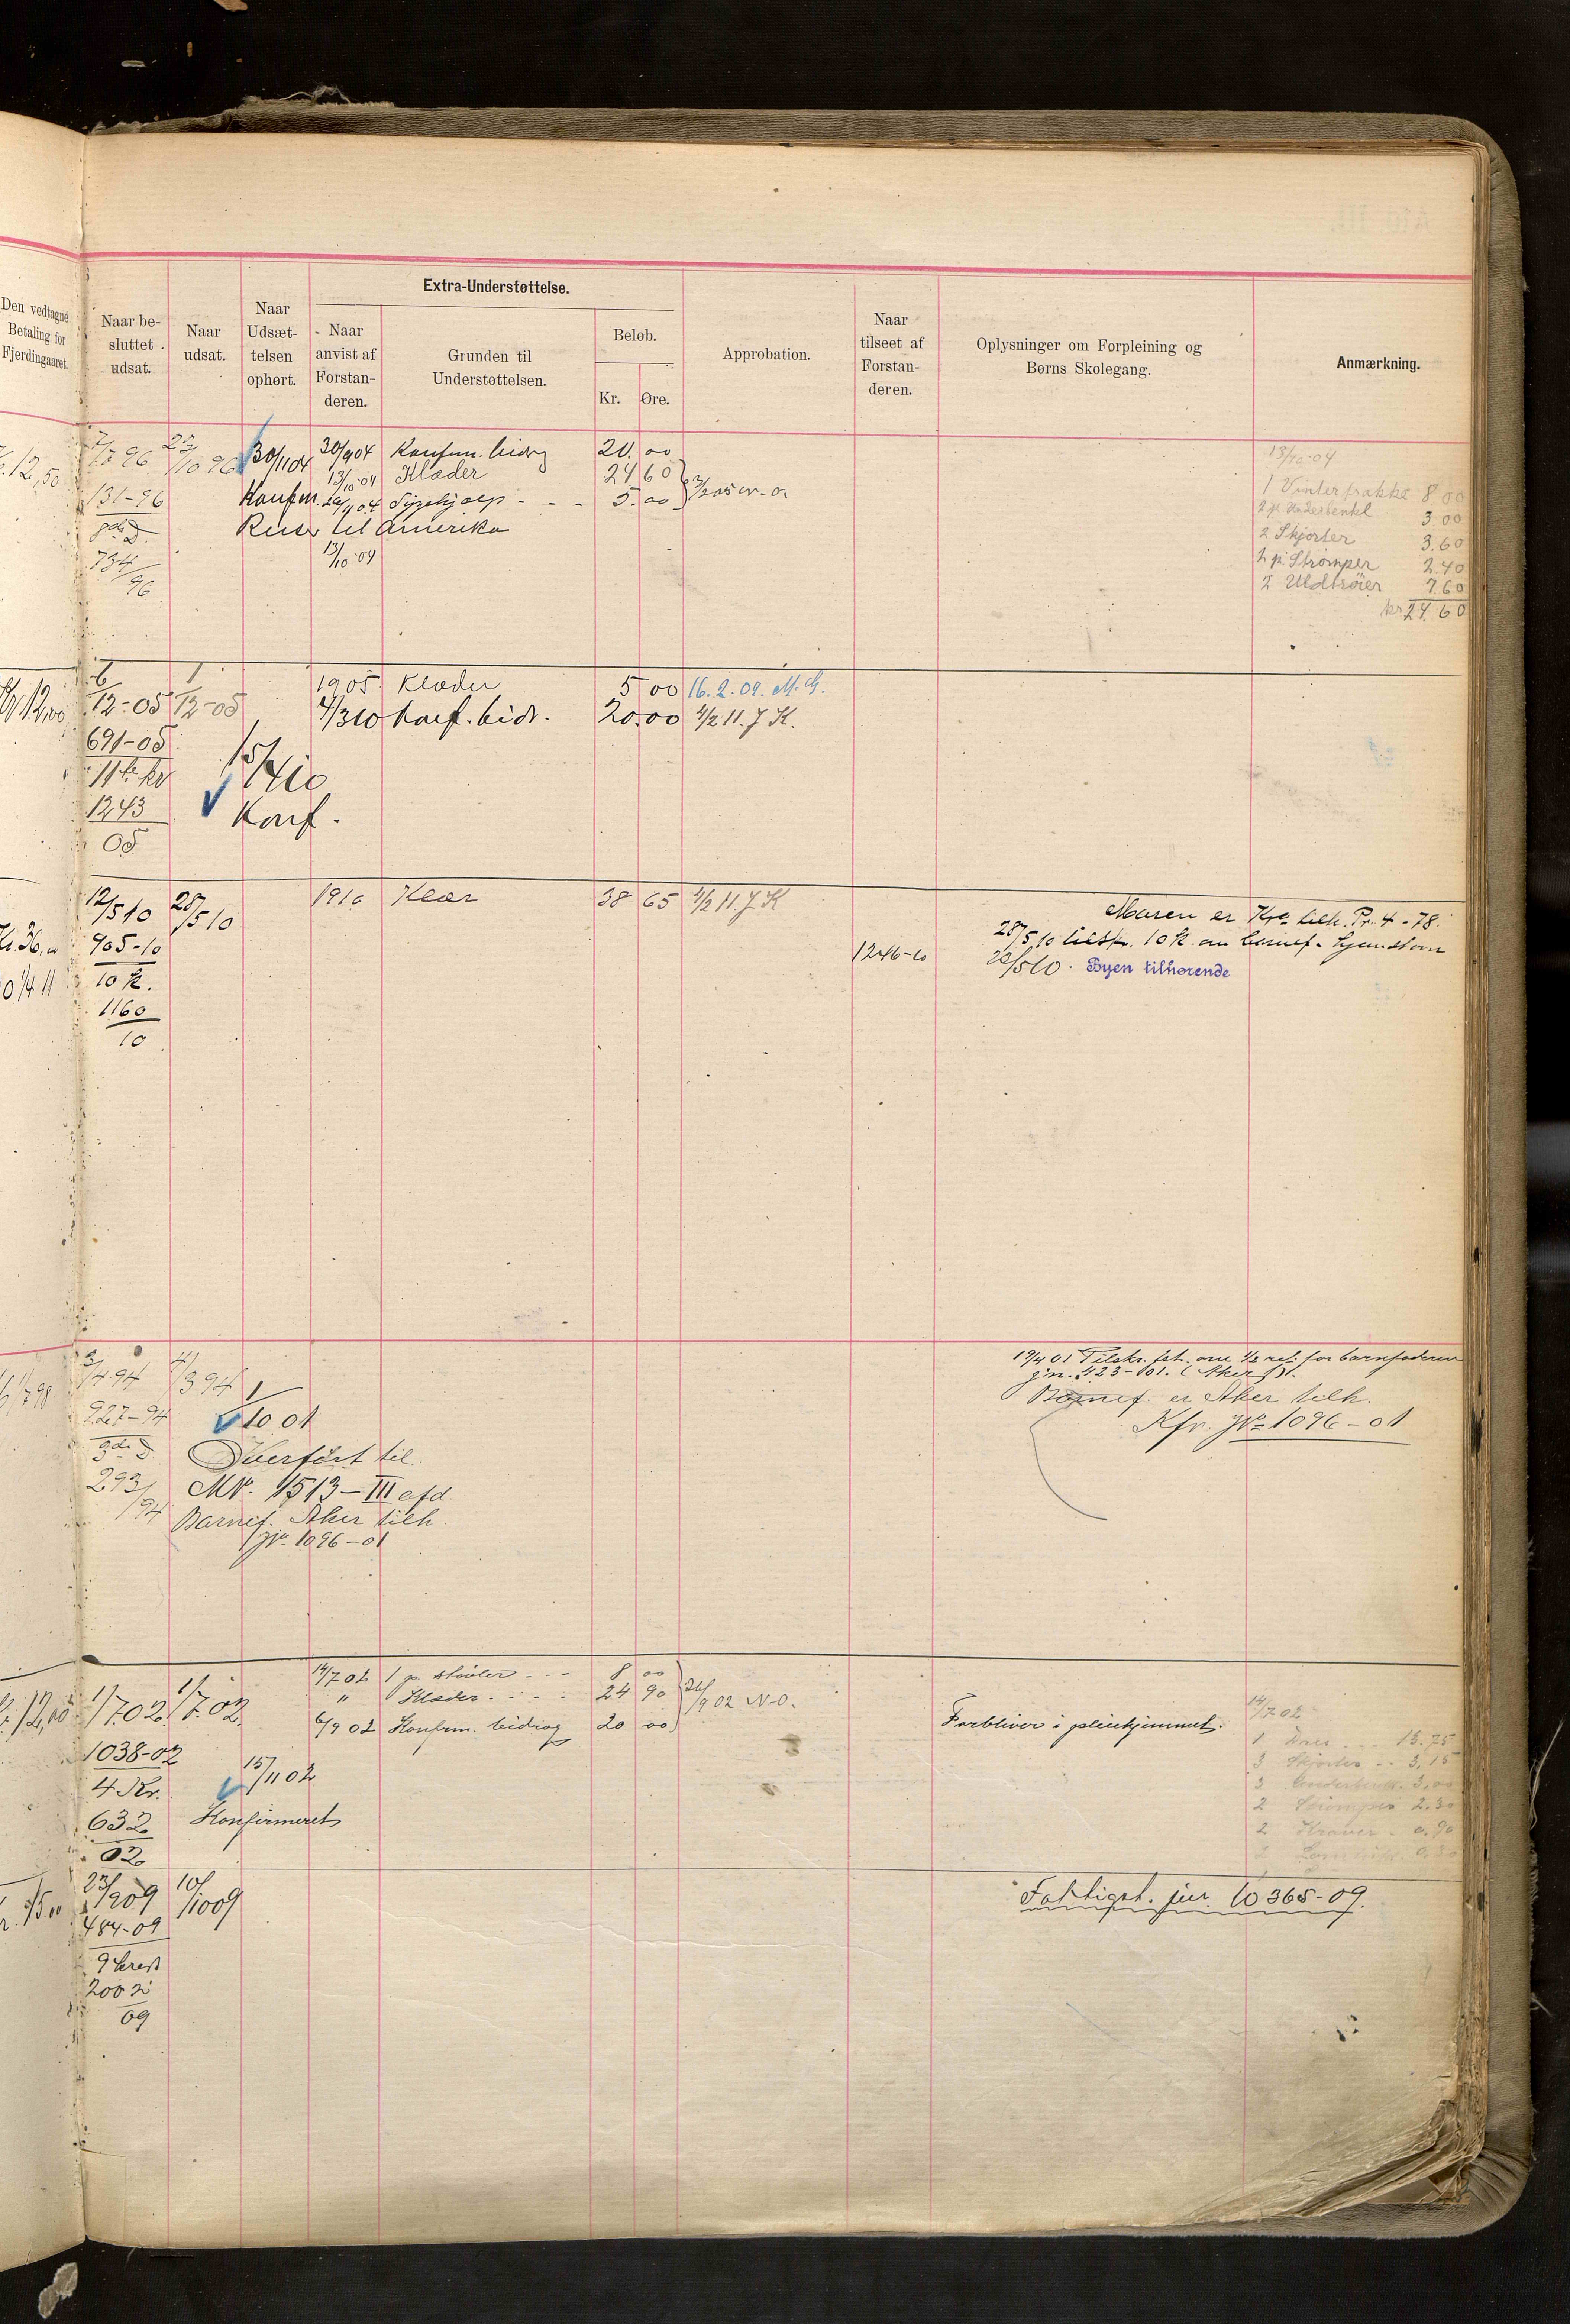 Den vedtagne
Betaling for
Fjerdingaaret.
Naar be-
sluttet
udsat.
Naar
udsat.
Naar
Udsæt-
telsen
ophørt.
Extra-Understøttelse.
Naar
anvist af
Forstan-
deren.
Grunden til
Understøttelsen.
Beløb.
Kr. Øre.
Approbation.
Naar
tilseet af
Forstan-
deren.
Oplysninger om Forpleining og
Børns Skolegang.
Anmærkning.
12,50
7/7 96 23/10 96 30/11 04 30/9 04 Konfm. bidrg 20.00
131-96 13/10-04 Klæder 24 60
Konfm. Sygehjælp - - 5.00
734/96
Reiser til Amerika
13/10-04
13/10-04
1 Vinterfrakke 8 00
3 00
2 Skjorter 3.60
2 p. Strømper 2.40
2 Uldtrøier 7.60
kr 24.60
12,00
6/12-05 1/12-05 1905 Klæder 5 00 16.2.09. M.G.
4/3 10 Konf. bidr. 20.00 4/2 11. J K.
691-05
11te kr
1243
05
15/4 10
Konf.
12/5 10 28/5 10 1910 Klær 38 65 4/2 11. J K
905-10
10 k.
1160
10
1246-10
Maren er Kra tilh. Pr. 4-78.
28/5 10 10 k. om barnef. hjemstavn
28/5 10. Byen tilhørende
3/4 94 4/3 94 1/10 01
927-94
293/94
Overført til
MNo. 1513-III afd.
Barnef. Aker tilh
JNo. 1096-01
19/4 01 Tilskr. fat. om 1/2 ref. for barnfaderen
jn. 423-01. (Aker)
Barnef. er Aker tilh.
Kfr. JNo 1096-01
12,00
1/7.02. 1/7.02. 14/7 02 1 p. støvler - - - 8 00
" Klæder - - - - 24 90
6/9 02 Konfm. bidrag 20 00
26/9 02 N-O.
1038-02
4 Kr.
632
02
15/11 02
Konfirmeret
Forbliver i pleiehjemmet.
14/7 02
1 Dres - - - 13.75
3 Skjorter - - 3,15
3 3,00
2 Strømper 2.30
2 Kraver - 0,90
23/2 09 10/10 09
484-09
2002
09
Faktigst. jur. 10365-09.